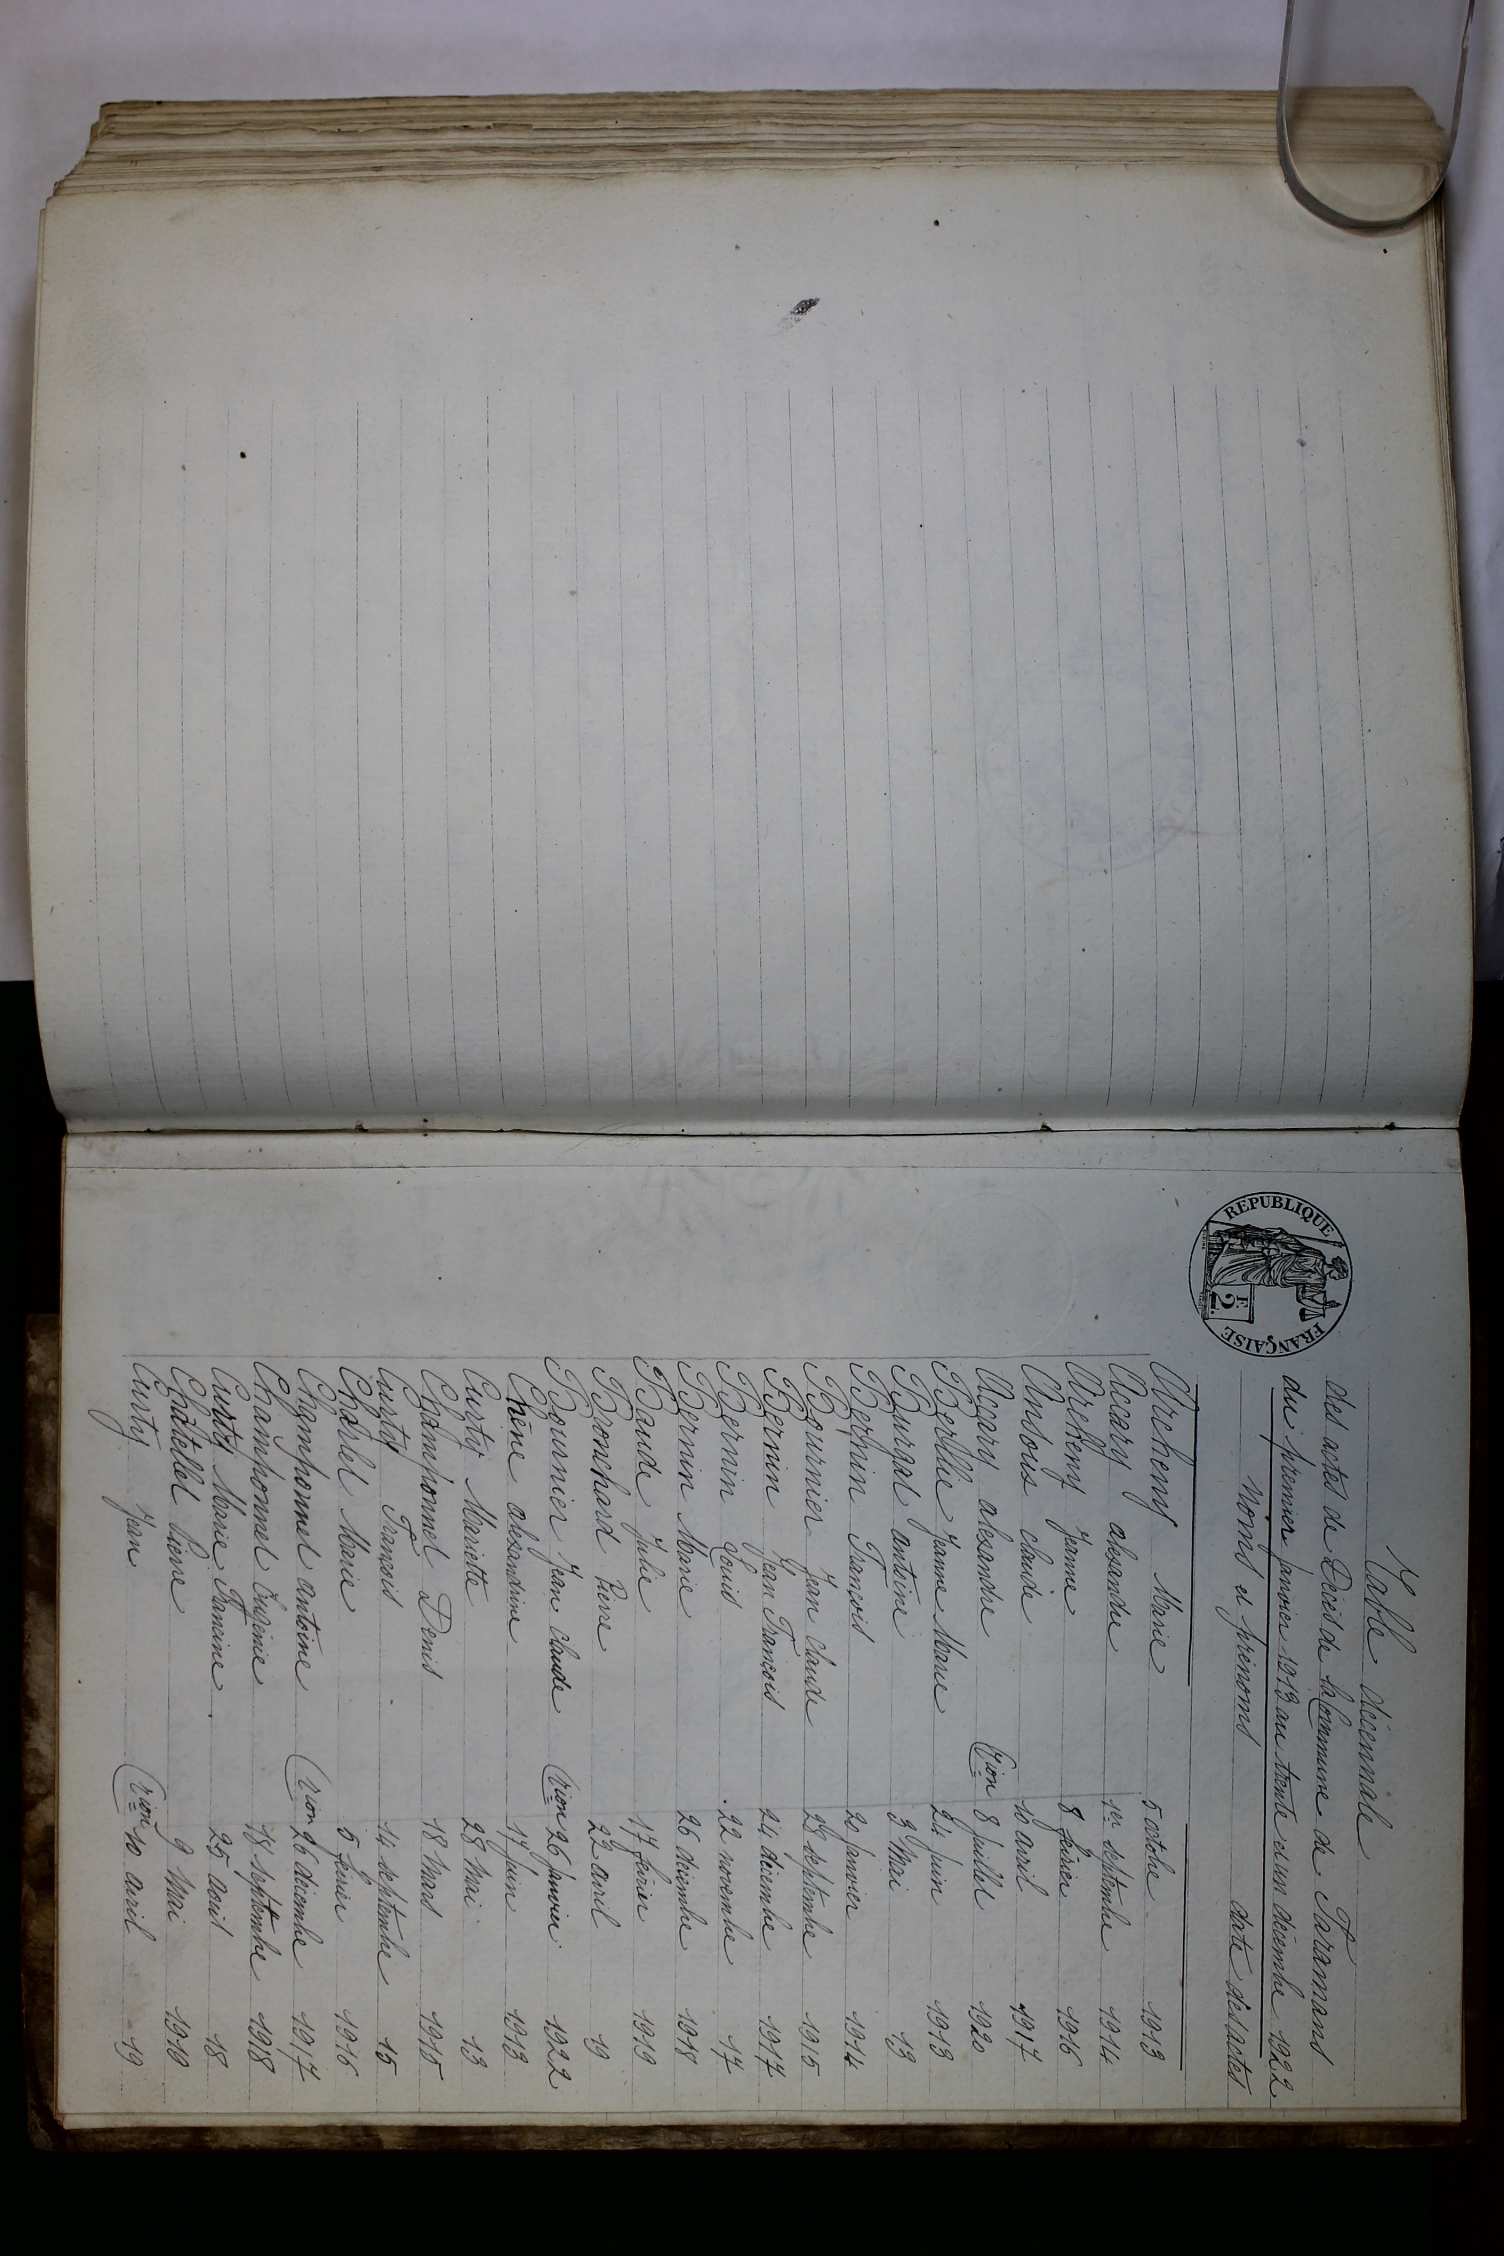 Table décennale
des actes de Décès de la Commune de Faramans
du premier janvier 1913 au trente et un décembre 1922
REPUBLIQUE FRANÇAISE
2 F.
noms et prénoms date des actes
Archeny Marie 5 octobre 1913
Accary alexandre 1er septembre 1914
Archeny Jeanne 8 février 1916
Andous claude 10 avril 1917
Accary alexandre (tion 8 juillet 1920
Berllie Jeanne Marie 24 juin 1913
Burgal antoine 3 Mai 13
Bernin François 20 janvier 1914
Bournier Jean claude 29 septembre 1915
Bernin Jean François 24 décembre 1917
Bernin Louis 22 novembre 17
Bernin Marie 26 décembre 1918
Baude Julie 17 février 1919
Bronchard Pierre 22 avril 19
Bournier Jean claude (tion 26 janvier 1922
Chêne alexandrine 17 juin 1913
Curty Mariette 28 Mai 13
Championnel Denis 18 Mars 1915
Curty François 14 septembre 15
Charlel Marie 5 février 1916
Championnel antoine (tion 26 décembre 1917
Championnel Eugénie 18 septembre 1918
Curty Marie Francine 25 avril 18
Châtellel Pierre 9 Mai 1919
Curty Jean (tion 10 avril 19